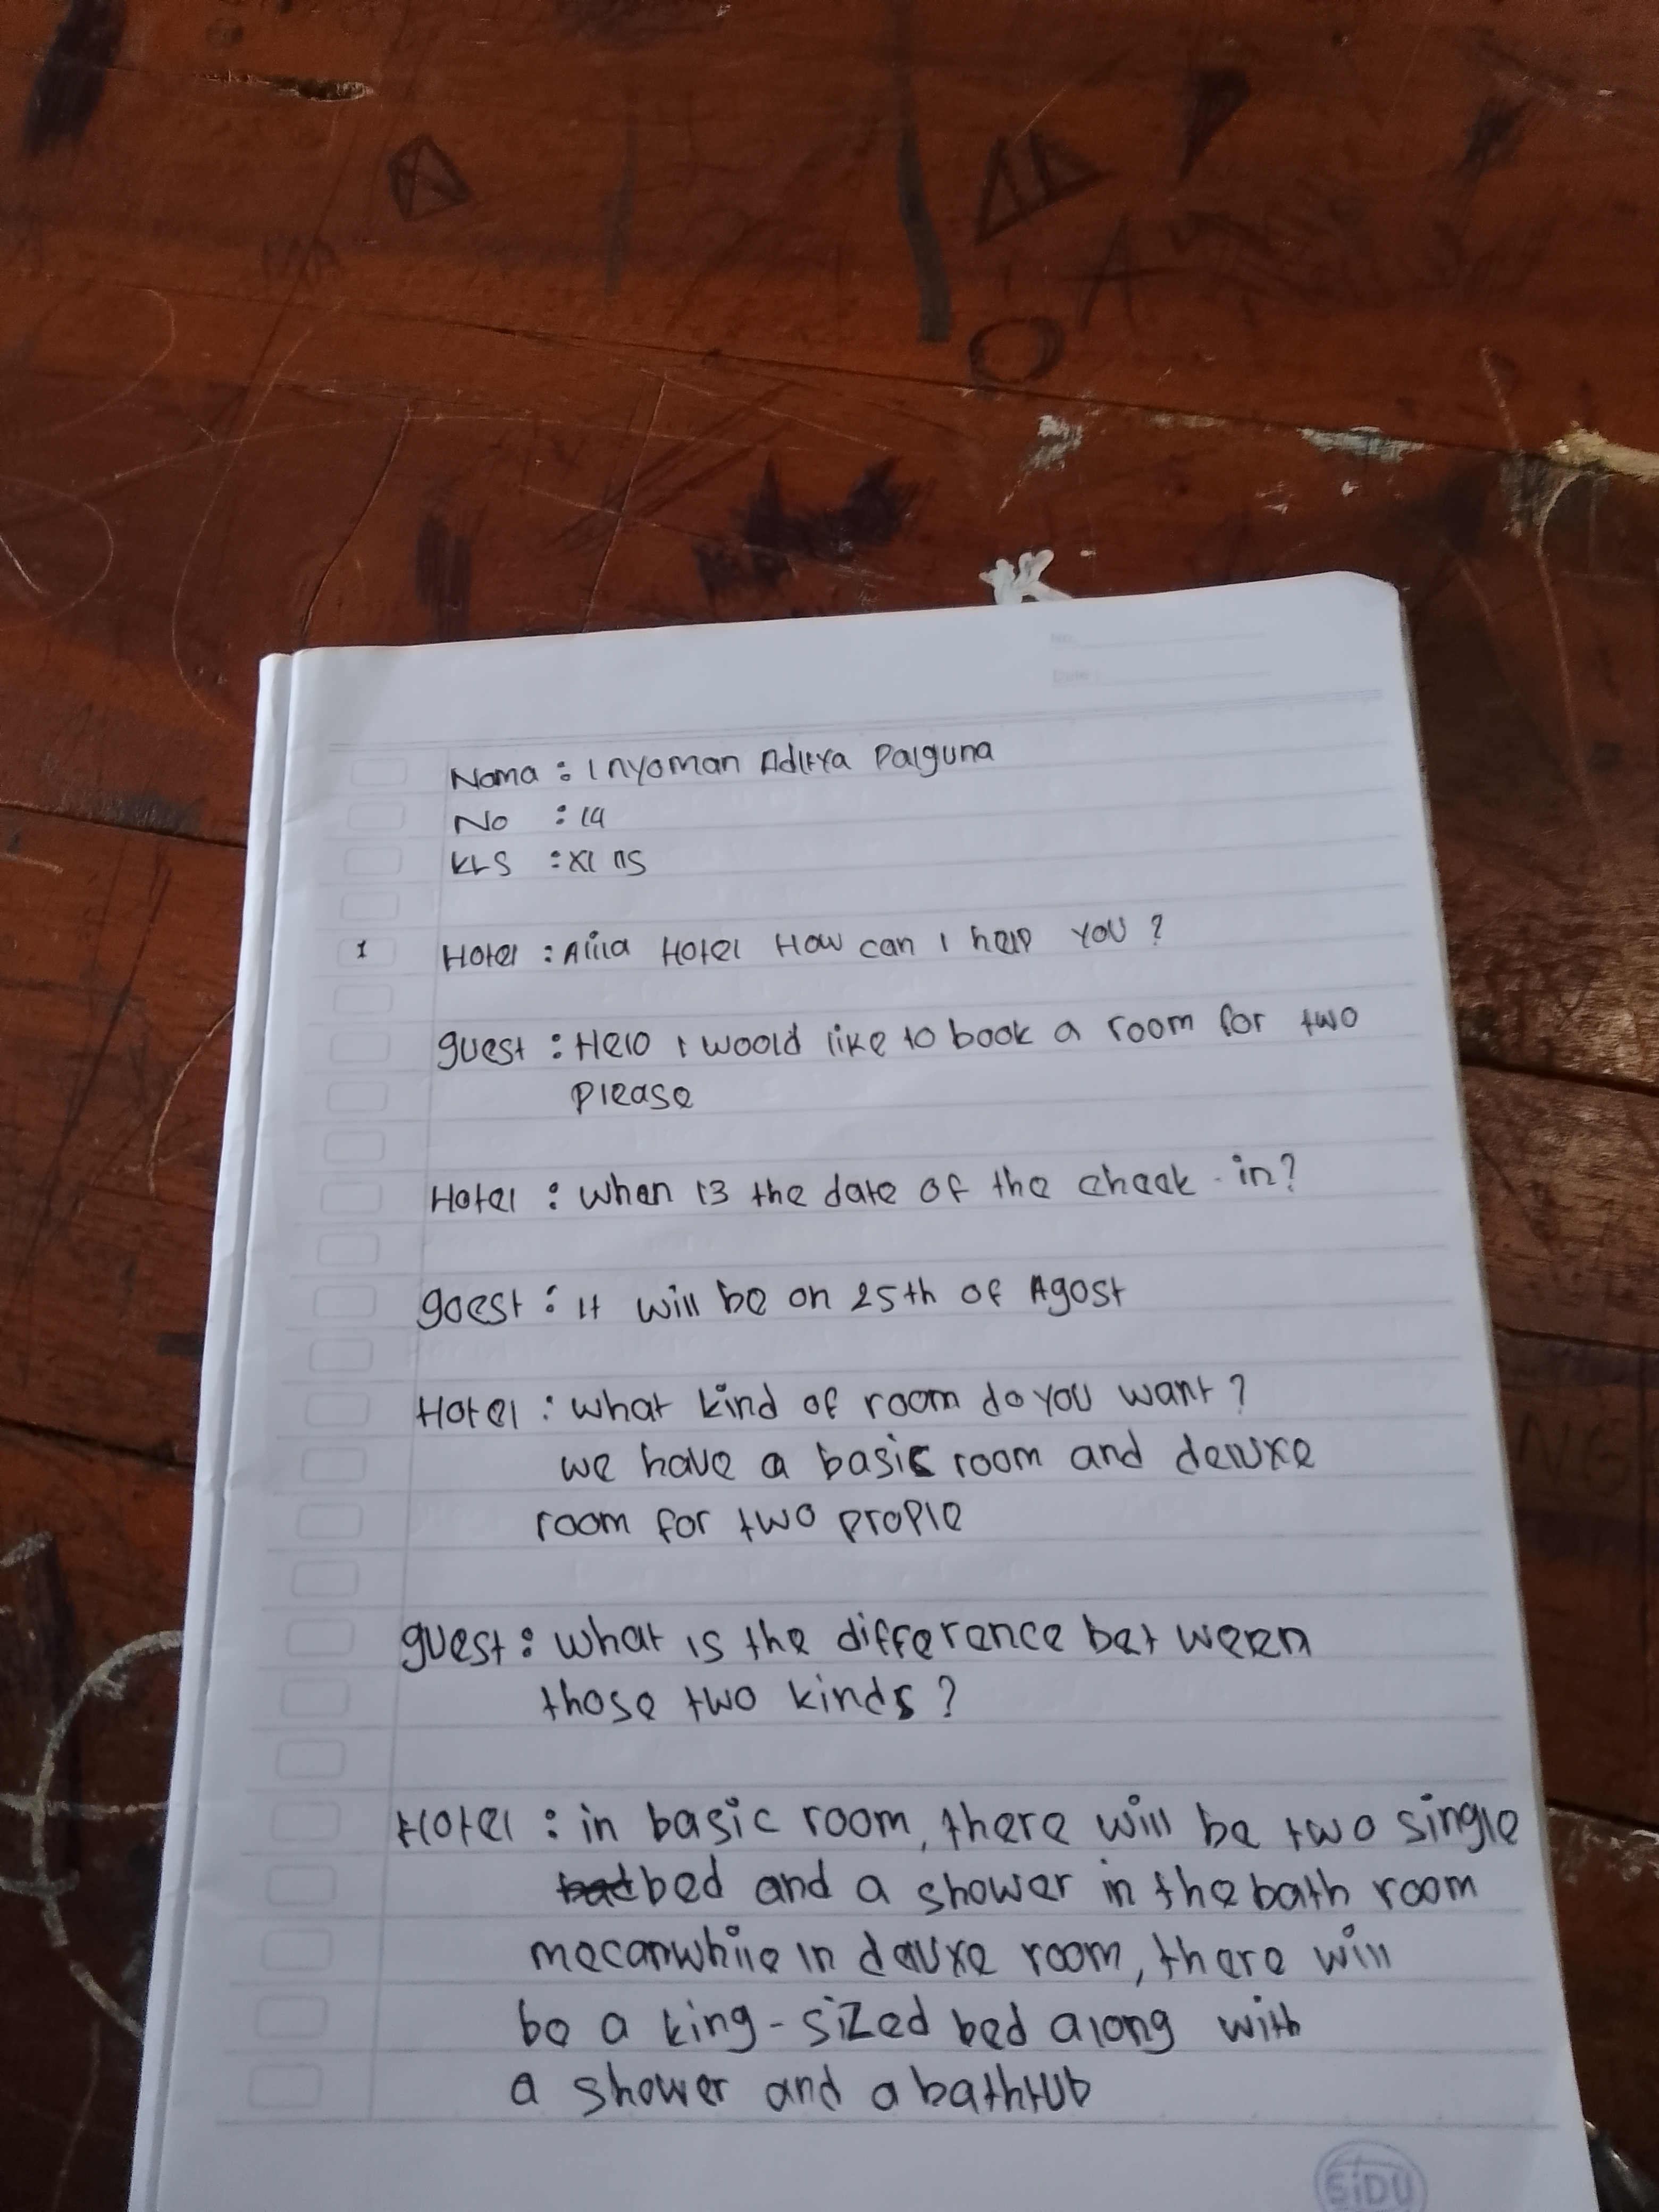 No:
Date:
Nama : I nyoman Aditya Palguna
No : 14
KLS : XI
1 Hotel : Alila Hotel How can I help you ?
guest : Helo I woold like to book a room for two
please
Hotel : when is the date of the chack - in?
goest : it will be on 25th of Agost
Hotel : what kind of room do you want ?
we have a basic room and deluxe
room for two prople
guest : what is the difference bet ween
those two kinds ?
Hotel : in basic room, there will be two single
bed and a shower in the bath room
mecanwhile in deluxe room, there will
be a king - sized bed along with
a shower and a bathtub
SiDU